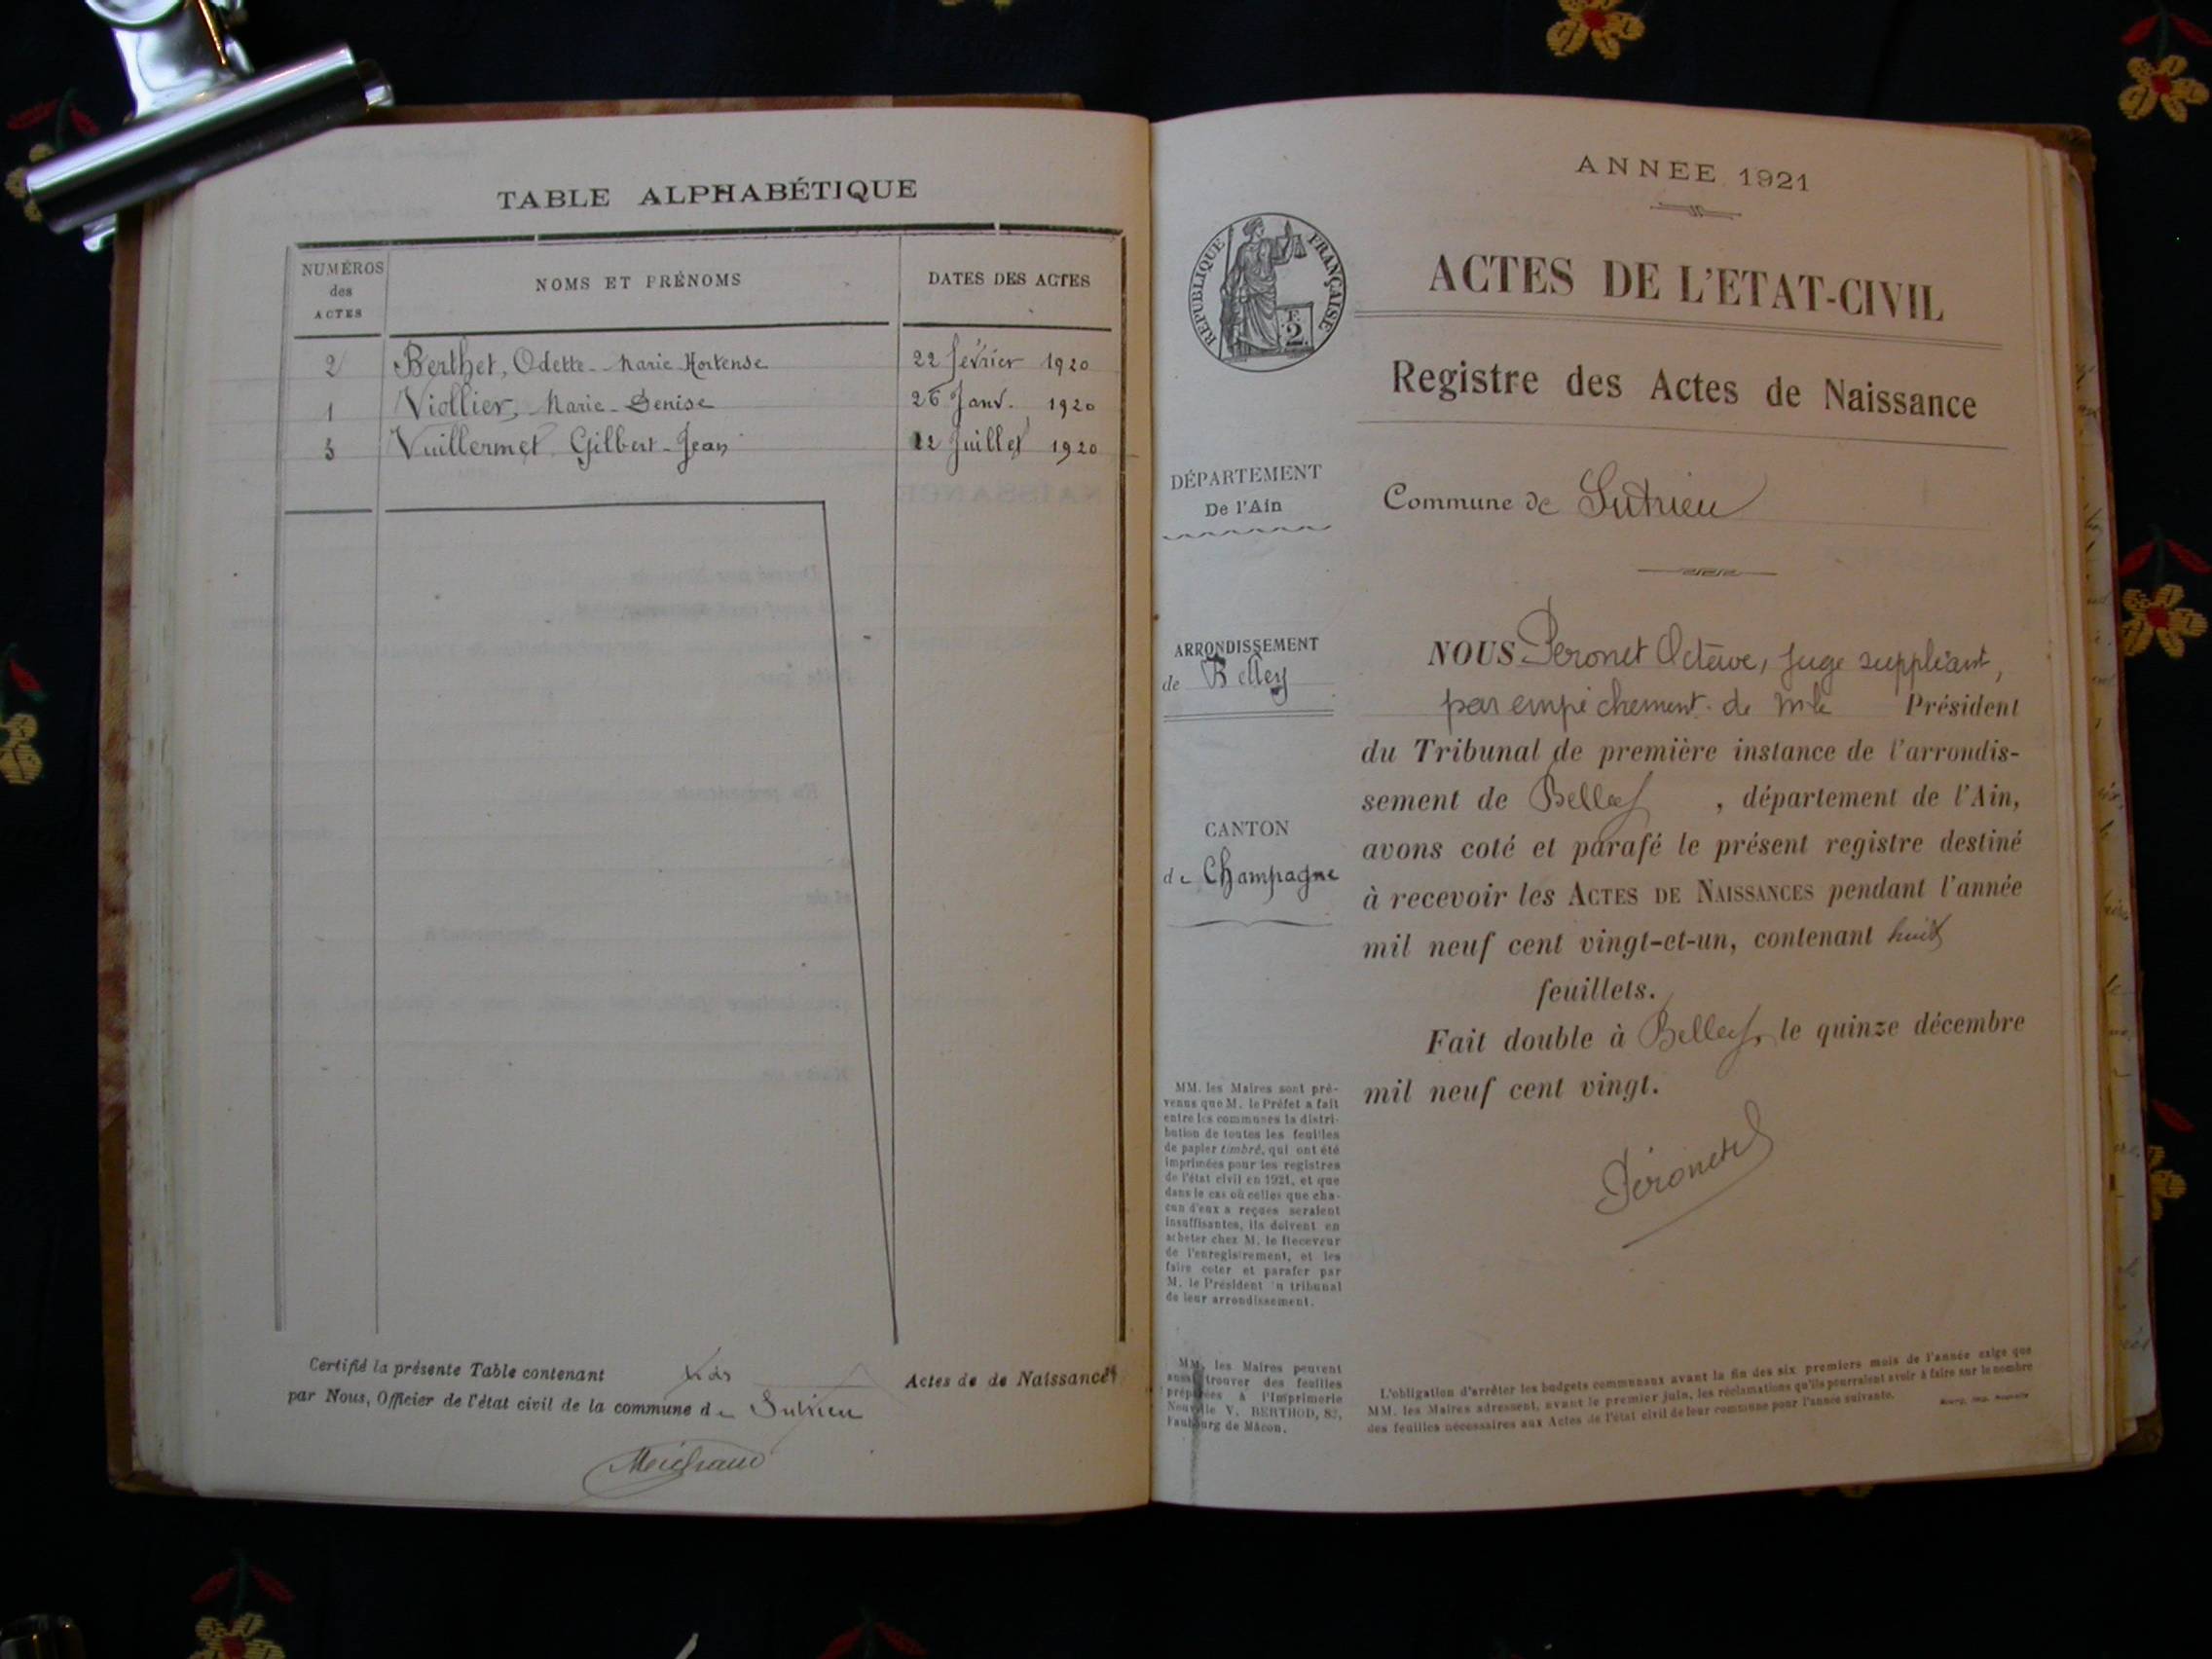 TABLE ALPHABÉTIQUE
NUMÉROS
des
ACTES
NOMS ET PRÉNOMS
DATES DES ACTES
2 Berthet, Odette - Marie - Hortense 22 février 1920
1 Viollier, Marie - Denise 26 Janv. 1920
3 Vuillermet Gilbert - Jean 12 Juillet 1920
Certifié la présente Table contenant Actes de de Naissances
par Nous, Officier de l'état civil de la commune de Sutrieu
ANNEE 1921
REPUBLIQUE FRANÇAISE
F.
2
ACTES DE L'ETAT-CIVIL
Registre des Actes de Naissance
DÉPARTEMENT
De l'Ain
Commune de Sutrieu
ARRONDISSEMENT
de Belley
CANTON
de Champagne
NOUS Peronet Octave, juge suppléant,
par empêchement de Mr le Président
du Tribunal de première instance de l'arrondis-
sement de Belley , département de l'Ain,
avons coté et parafé le présent registre destiné
à recevoir les ACTES DE NAISSANCES pendant l'année
mil neuf cent vingt-et-un, contenant huit
feuillets.
Fait double à Belley, le quinze décembre
mil neuf cent vingt.
Péronet
MM. les Maires sont pré-
venus que M. le Préfet a fait
entre les communes la distri-
bution de toutes les feuilles
de papier timbré, qui ont été
imprimées pour les registres
de l'état civil en 1921, et que
dans le cas où celles que cha-
cun d'eux a reçues seraient
insuffisantes, ils doivent en
acheter chez M. le Receveur
de l'enregistrement, et les
faire coter et parafer par
M. le Président n tribunal
de leur arrondissement.
MM. les Maires peuvent
aussi trouver des feuilles
préparées à l'Imprimerie
Nouvelle V. BERTHOD, 82,
Faubourg de Mâcon.
L'obligation d'arrêter les budgets communaux avant la fin des six premiers mois de l'année exige que
MM. les Maires adressent, avant le premier juin, les réclamations qu'ils pourraient avoir à faire sur le nombre
des feuilles nécessaires aux Actes de l'état civil de leur commune pour l'année suivante.